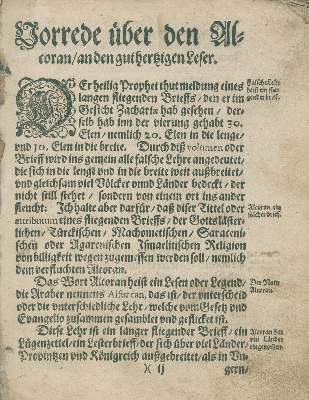 Vorrede über den Al-
coran / an den guthertzigen Leser.
DEr heilig Prophet thut meldung eines
langen fliegenden Brieffs / den er im
Gesicht Zachariæ hab gesehen / der-
selb hab inn der vierung gehabt 30.
Elen / nemlich 20. Elen in die lenge /
und 10. Elen in die breite. Durch diß volumen oder
Brieff wird ins gemein alle falsche Lehre angedeutet /
die sich in die lenge und in die breite weit außbreitet /
und gleichsam viel Völcker unnd Länder bedeckt / der
nicht still stehet / sondern von einem ort ins ander
fleucht: Ich halte aber darfür / daß diser Tittel oder
attributum eines fliegenden Brieffs / der Gottsläster-
lichen / Türckischen / Machometischen / Saraceni-
schen oder Agarenischen Ismaelitischen Religion
von billigkeit wegen zugemessen werden soll / nemlich
dem verfluchten Alcoran.
Das Wort Alcoran heist ein Lesen oder Legend /
die Araber nennens Alfurcan, das ist / der unterscheid
oder die unterschiedliche Lehr / welche vom Gesetz und
Evangelio zusammen gesamblet und geflicket ist.
Diese Lehr ist ein langer fliegender Brieff / ein
Lügenzettel / ein Lesterbrieff / der sich über viel Länder /
Provintzen und Königreich außgebreitet / als in Un-
)( ij
gern /
Falsche Lehr
heist ein flie-
gender brief.
Alcoran ein
solcher brieff.
Der Nam
Alcoran.
Alcoran hat
viel Länder
eingenommen.